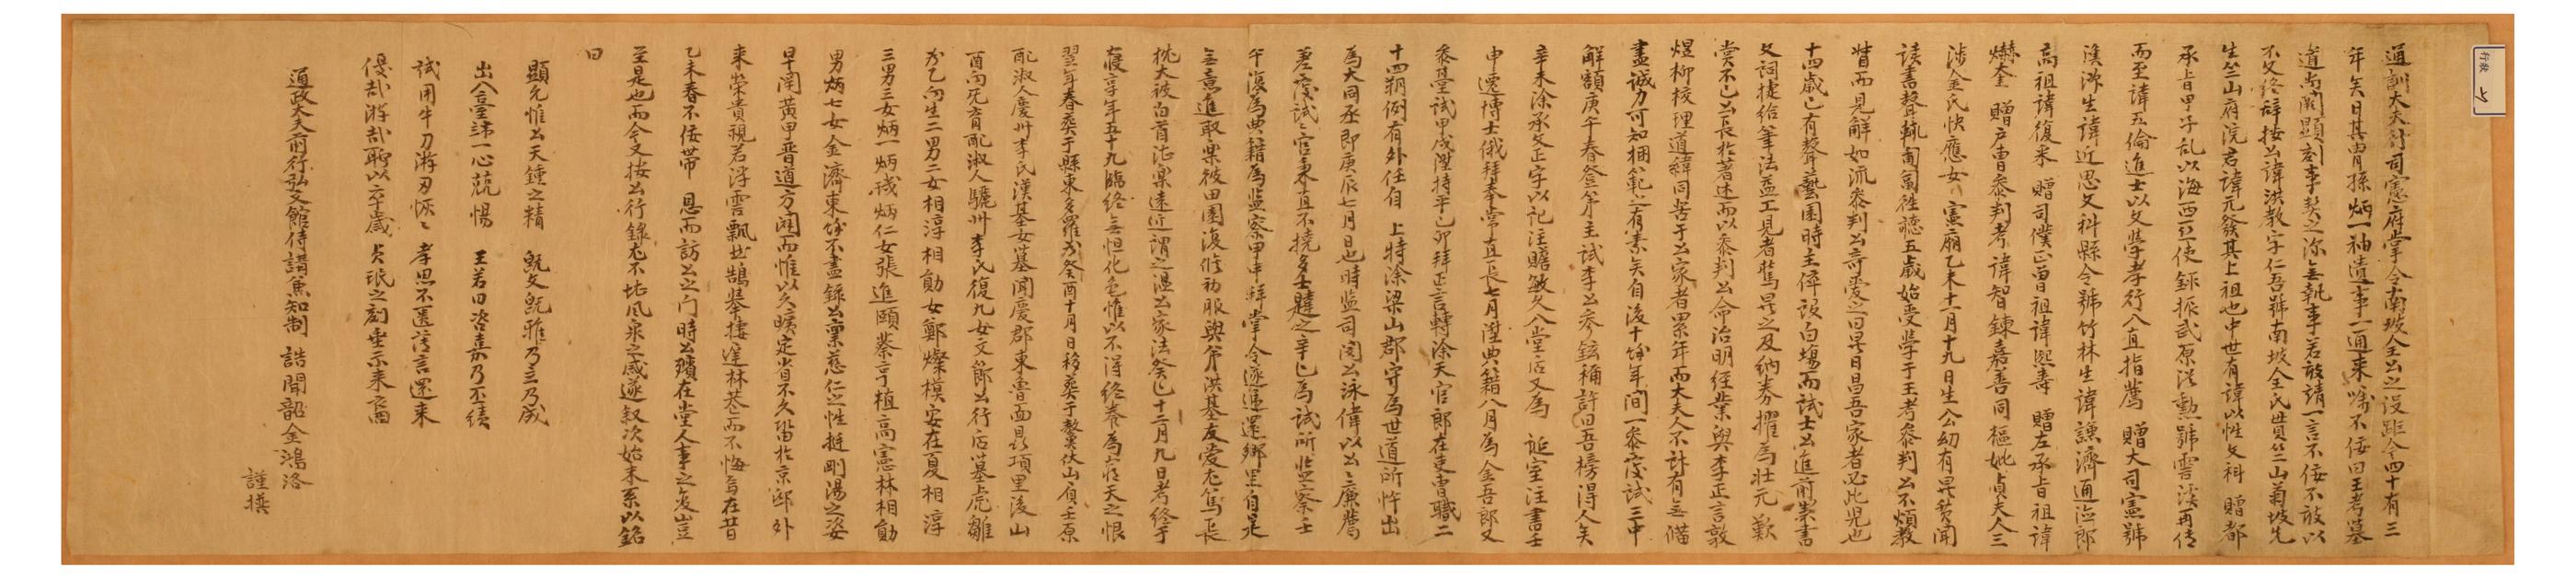 通訓大夫行司憲府掌令南坡全公之沒距今四十有三
年矣日其胄孫炳一袖遺事一通來 不佞曰王考墓
道尚闕顯刻事契之深無執事若敢請一言不佞不敢以
不文終辭按公諱洪敎字仁吾號南坡全氏貫竺山菊坡先
生竺山府院君諱元發其上祖也中世有諱以性文科 贈都
承旨甲子亂以海西 使錄振武原從勳號雲溪再傳
而至諱五倫進士以文學孝行入直指薦 贈大司憲號
漁洲生諱近思文科縣令號竹林生諱謙濟通德郎
高祖諱復采 贈司僕正曾祖諱熙壽 贈左承旨祖諱
爀奎 贈戶曹參判考諱智鍊嘉善同樞妣貞夫人三
涉金氏快應女 憲廟乙未十一月十九日生公幼有異質聞
讀書聲輒匍匐往聽五歲始受學于王考參判公不煩敎
督而見解如流參判公奇愛之曰異日昌吾家者必此兒也
十四歲已有聲藝園時主倅設白場而試士公進前崇書
文詞捷給筆法益工見者驚異之及納券擢爲壯元歎
賞不已公長於著述而以參判公命治明經業與李正言敦
煜柳校理道緯同苦于公家者累年而大夫人不計有無備
盡誠力可知梱範之有素矣自後十餘年間一參 試三中
解額庚午春登第主試李公參鉉稱許曰吾榜得人矣
辛未除承文正字以記注贍敏久入堂后又爲 注書壬
申遷博士俄拜奉常直長七月陞典籍八月爲金吾郎又
參臺試甲戌陞持平己卯拜正言轉除天官郎在吏曹職二
十四朔例有外任自 上特除梁山郡守爲世道所忤出
爲大同丞即庚辰七月日也時監司閔公泳偉以公廉薦
差 試 官秉直不撓多士韙之辛巳爲試所監察壬
午復爲典籍爲監察甲申拜掌令遂退還鄕里自是
無意進取樂彼田園復修初服與弟洪基友愛尤篤長
枕大被白首湛樂遠近謂之湜公家法癸巳十二月九日考終于
寢享年五十九臨終無怛化色惟以不得終養爲 天之恨
翌年春葬于縣東多羅 癸酉十月日移葬于 休山負壬原
配淑人慶州李氏漢基女墓聞慶郡東魯面 項里後山
酉向 育配淑人驪州李氏復九女文節公行后墓虎鶴
 乙向生二男二女相淳相勛女鄭燦模安在夏相淳
三男三女炳一炳 炳仁女張進頤蔡亨植高憲林相勛
男炳七女金濟東餘不盡錄公稟慈仁之性挺剛陽之姿
早闡黃甲晋道方闢而惟以久曠定省不久留於京邸外
來榮貴視若浮雲飄 鵠擧捿遲林巷而不悔 在昔
乙未春不佞帶 恩而訪公之門時公 在堂人事之變豈
至是也而今又按公行錄尤不堪風泉之感遂叙次始末系以銘
曰
顯允惟公天鍾之精 旣文旣雅乃立乃成
出入臺諫一心兢惕 王若曰咨嘉乃丕績
試用牛刀游刃恢恢 孝思不匱 言還來
優哉游哉聊以卒歲 貞珉之刻垂示來裔
通政大夫前行弘文館侍講兼知制 誥聞韶金鴻洛
謹撰